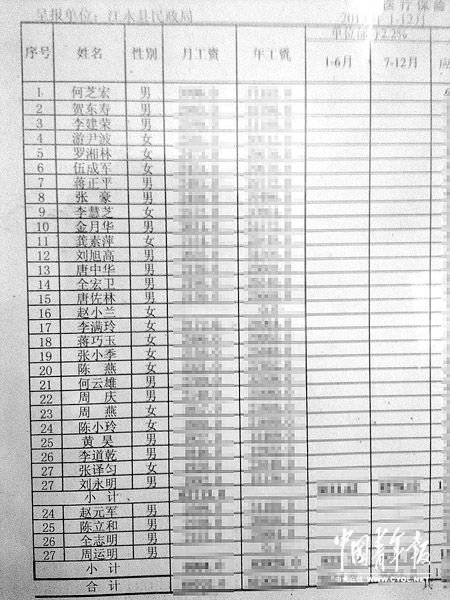 呈报单位：江永县民政局
医疗保险
1-12月
单位部分2.2%
序号 姓名 性别 月工资 年工资 1-6月 7-12月
1 何芝宏 男
2 贺东寿 男
3 李建荣 男
4 游尹波 女
5 罗湘林 女
6 伍成军 女
7 蒋正平 男
8 张豪 男
9 李慧芝 女
10 金月华 男
11 龚素萍 女
12 刘旭高 男
13 唐中华 男
14 全宏卫 男
15 唐佐林 男
16 赵小兰 女
17 李满玲 女
18 蒋巧玉 女
19 张小季 女
20 陈燕 女
21 何云雄 男
22 周庆 男
23 周燕 女
24 陈小玲 女
25 黄昊 男
26 李道乾 男
27 张译匀 女
27 刘永明 男
小计
24 赵元军 男
25 陈立和 男
26 全志明 男
27 周运明 男
小计
合计
中国青年报
WWW.CYOL.NET